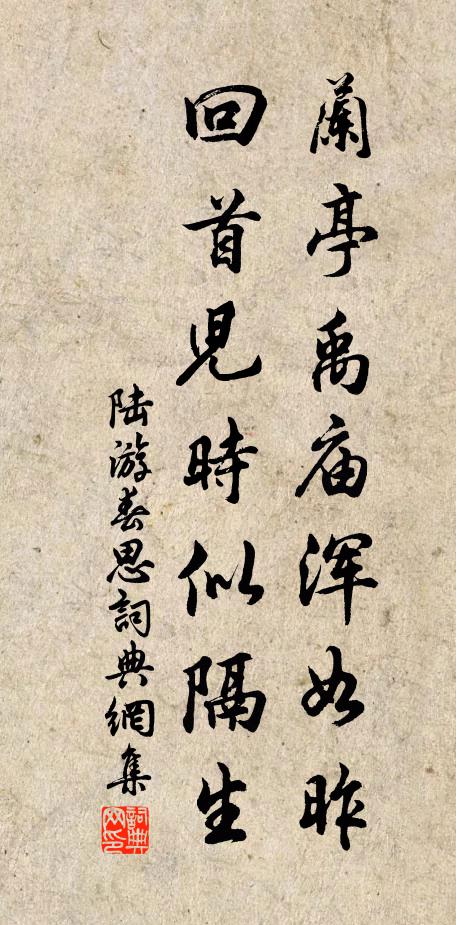 蘭亭禹庙渾如昨
回首児時似隔生
陆游春思詞典網集
詞典網印